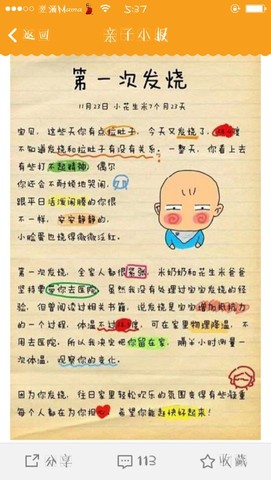 5:37
返回
亲子小报
第一次发烧
11月23日 小花生米7个月23天
宝贝,这些天你有点拉肚子,今天又发烧了,
不知道发烧和拉肚子有没有关系。一整天,你看上去
有些打不起精神,偶尔
你还会不耐烦地哭闹,
跟平日活泼闹腾的你很
不一样,安安静静的,
小脸蛋也烧得微微泛红。
第一次发烧,全家人都很紧张,米奶奶和花生米爸爸
坚持要带你去医院,虽然我没有处理过宝宝发烧的经
验,但曾阅读过相关书籍,说发烧是宝宝增加抵抗力
的一个过程,体温不过 度,可在家里物理降温,不
用去医院,所以我决定把你留在家,隔半小时测量一
次体温,观察你的变化。
因为你发烧,往日家里轻松欢乐的氛围变得有些凝重
每个人都在为你担心,希望你能赶快好起来!
分享
113
收藏